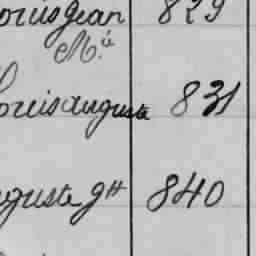 ouis jean 829
M.ie
Louis auguste 831
guste gtt 840